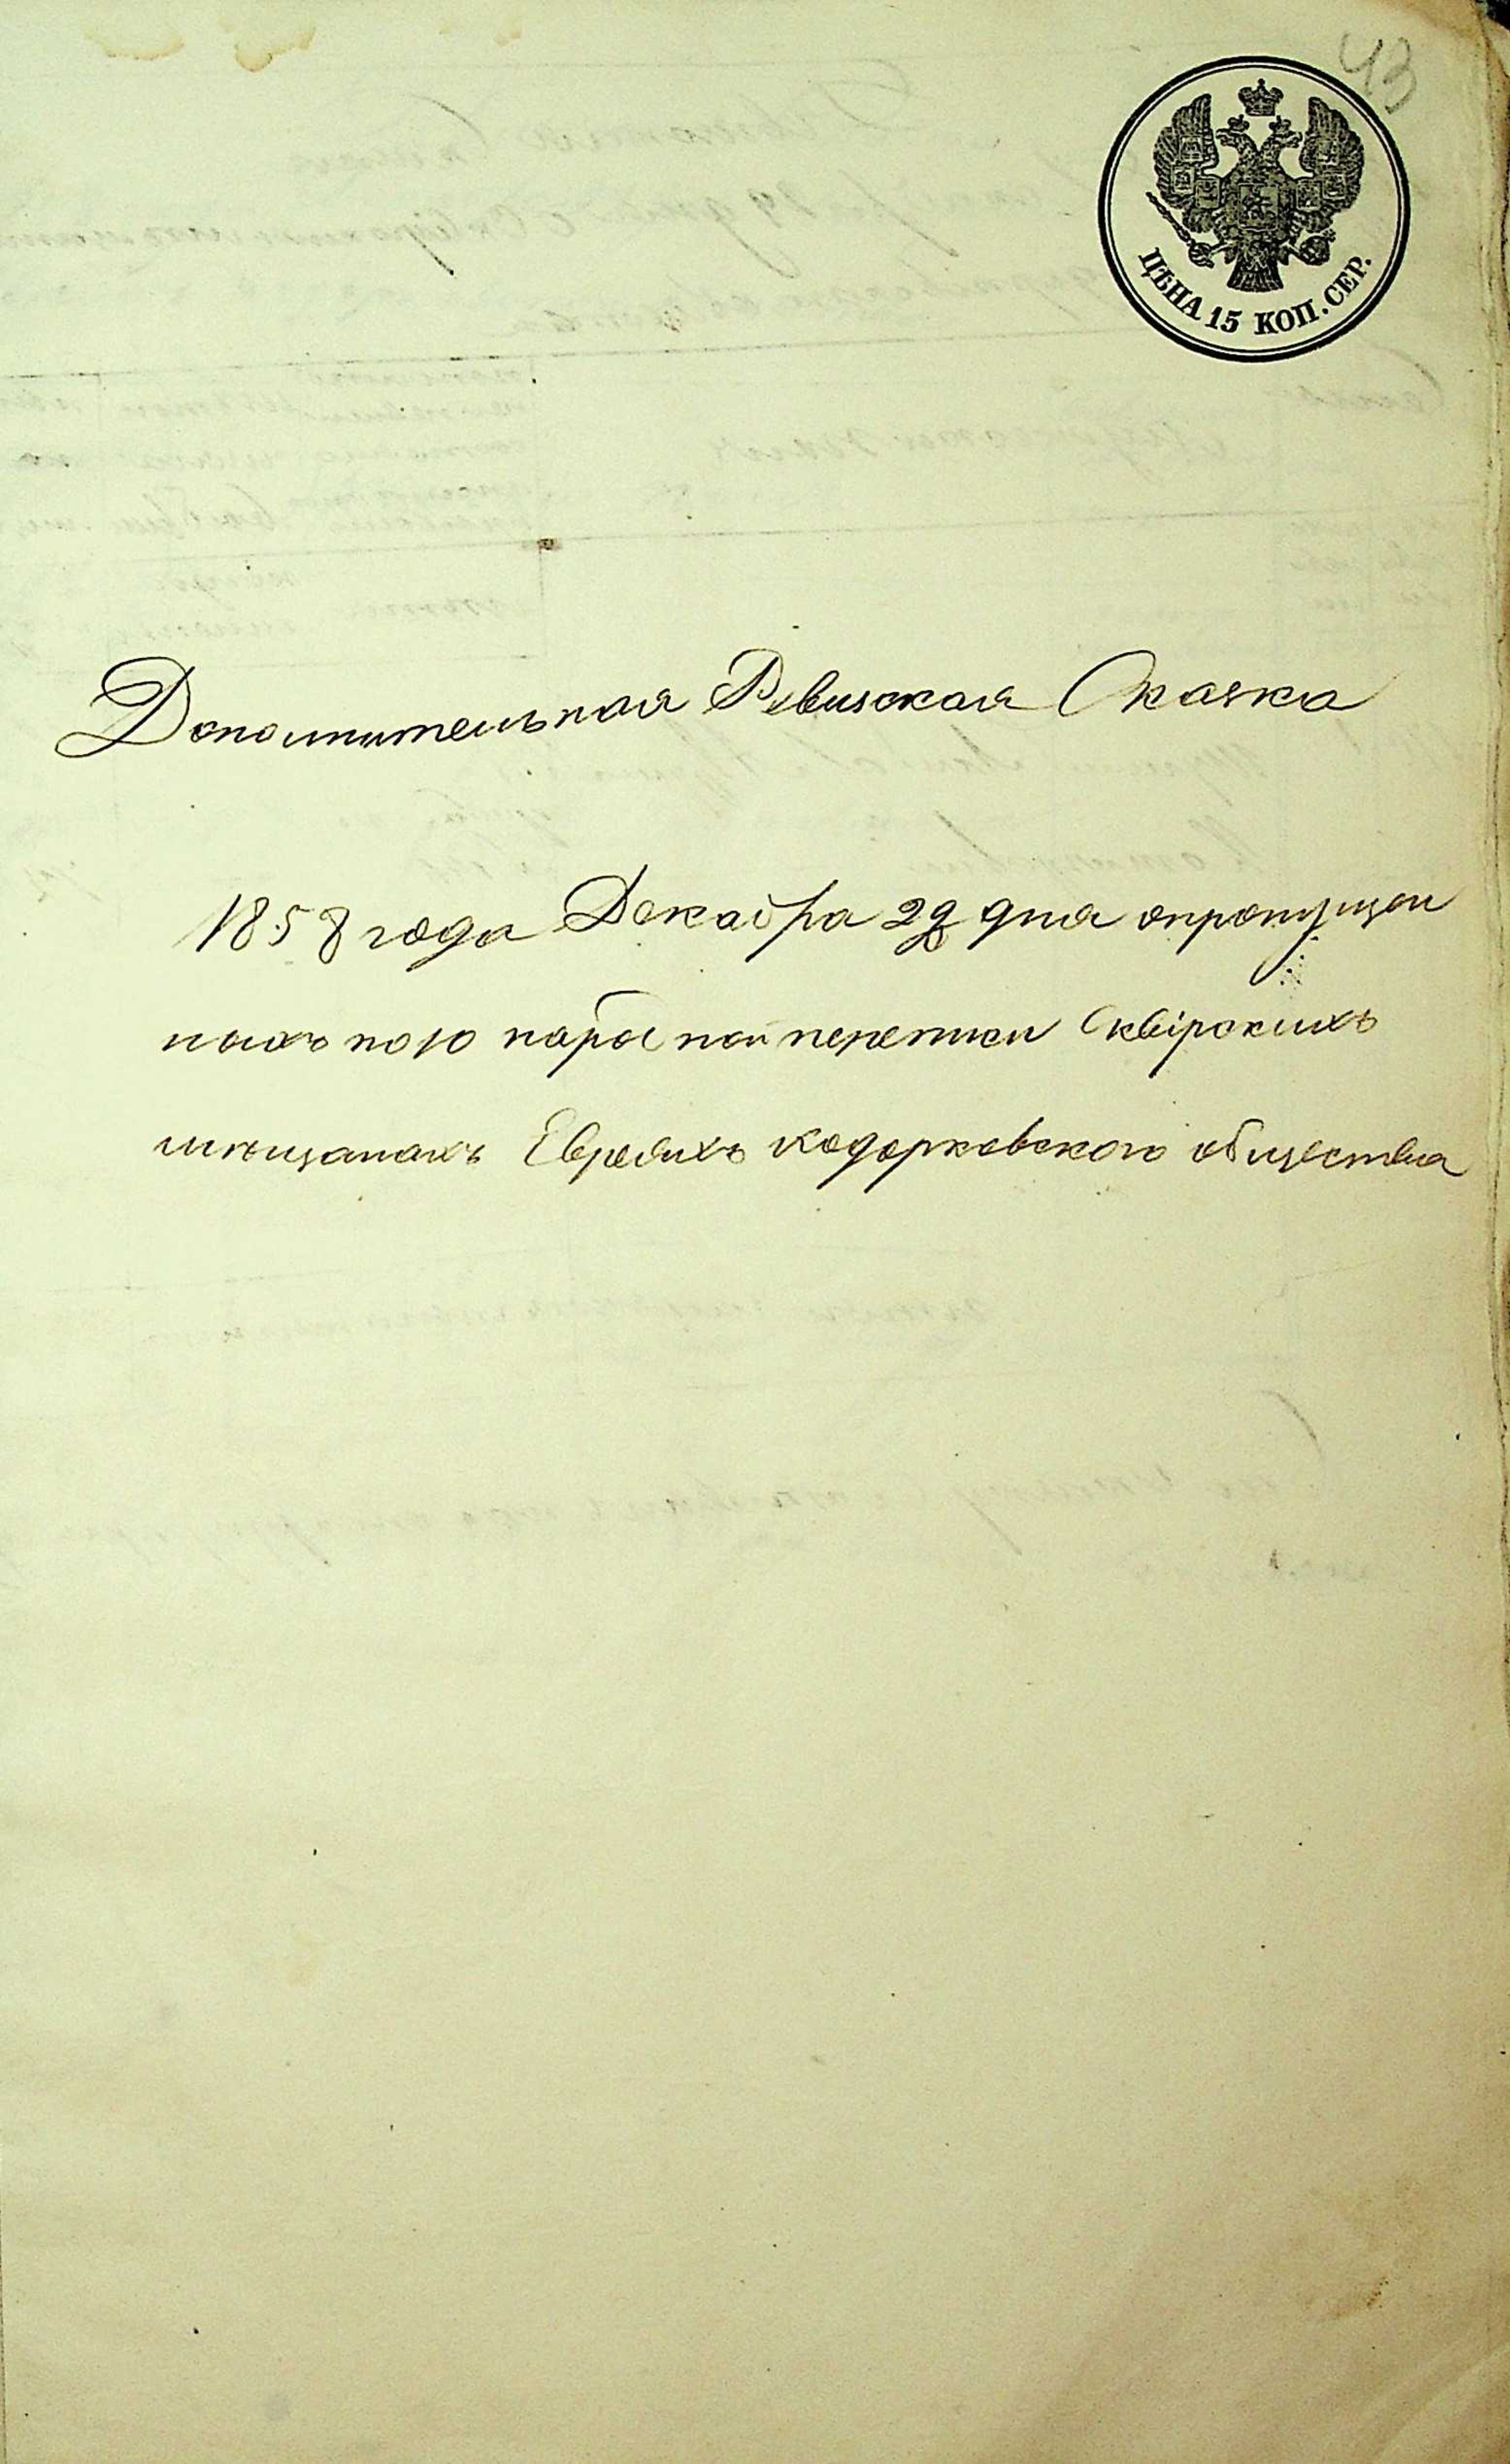 43
ЦѢНА 15 КОП. СЕР.
Дополнительная Ревизская Сказка
1858 года Декабра 29 дня опропущен
ныхъ по 10 народной переписи Сквирскихъ
мѣщанахъ Евреяхъ кодорковского общества